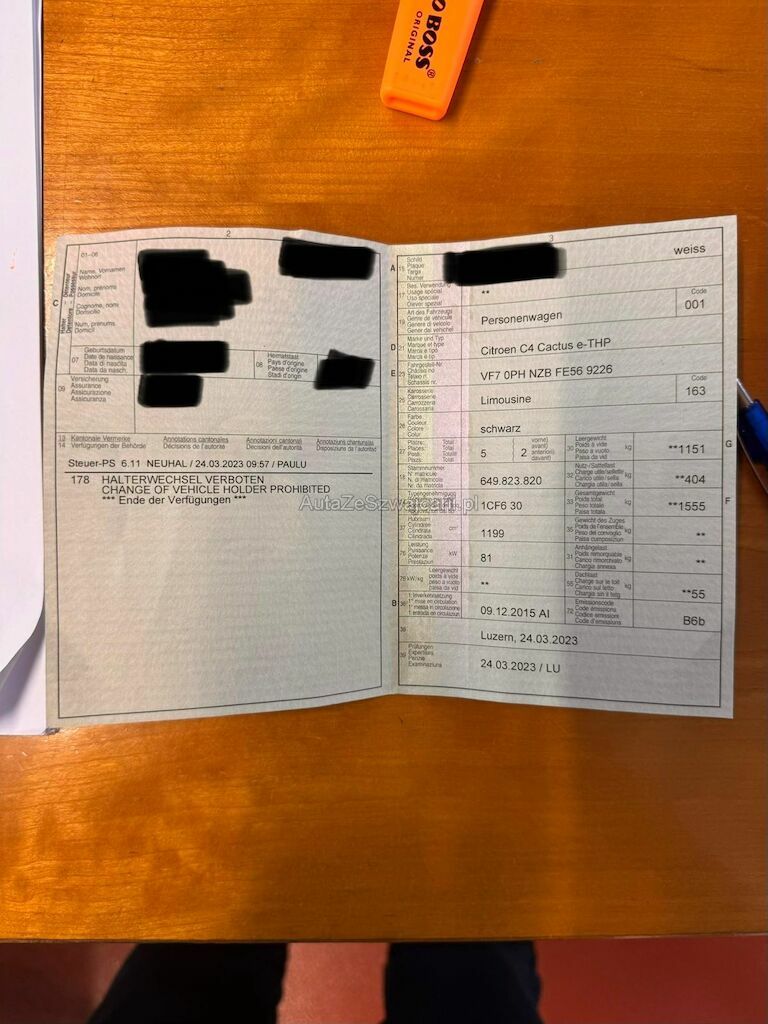 O BOSS®
ORIGINAL
2
01-06
Name, Vornamen
Wohnort
Nom, prénoms
Domicile
Cognome, nomi
Domicilio
Num, prenums
Domicil
C
07
Geburtsdatum
Date de naissance
Data di nascita
Data da nasch.
08
Heimatstaat
Pays d'origine
Paese d'origine
Stadi d'origin
09
Versicherung
Assurance
Assicurazione
Assicuranza
13 Kantonale Vermerke Annotations cantonales Annotazioni cantonali Annotaziuns chantunalas
14 Verfügungen der Behörde Décisions de l'autorité Decisioni dell'autorità Disposiziuns da l'autoritad
Steuer-PS 6.11 NEUHAL / 24.03.2023 09:57 / PAULU
178 HALTERWECHSEL VERBOTEN
CHANGE OF VEHICLE HOLDER PROHIBITED
*** Ende der Verfügungen ***
AutaZeSzwajcarii.pl
3
A 15
Schild
Plaque
Targa
Numer
weiss
17
Bes. Verwendung
Usage spécial
Uso speciale
Diever spezial
**
19
Art des Fahrzeugs
Genre de véhicule
Genere di veicolo
Gener dal vehichel
Personenwagen
Code
001
D 21
Marke und Typ
Marque et type
Marca e tipo
Marca e tip
Citroen C4 Cactus e-THP
E 23
Fahrgestell-Nr.
Châssis no
Telaio n.
Schassis nr.
VF7 0PH NZB FE56 9226
25
Karosserie
Carrosserie
Carrozzeria
Carossaria
Limousine
Code
163
26
Farbe
Couleur
Colore
Colur
schwarz
27
Plätze: Total
Places: Total
Posti: Totale
Plazs: Total
5
2
vorne)
avant)
anteriori)
davant)
30
Leergewicht
Poids à vide
Peso a vuoto
Paisa da vid
kg
**1151
G
18
Stammnummer
N° matricule
N. di matricola
Nr. da matricla
649.823.820
32
Nutz-/Sattellast
Charge utile/sellette
Carico utile/sella
Chargia utila/sella
kg
**404
Typengenehmigung
1CF6 30
33
Gesamtgewicht
Poids total
Peso totale
Paisa totala
kg
**1555
F
37
Hubraum
Cylindrée
Cilindrata
Cilindrada
cm³
1199
35
Gewicht des Zuges
Poids de l'ensemble
Peso del convoglio
Paisa cumposiziun
kg
**
76
Leistung
Puissance
Potenza
Prestaziun
kW
81
31
Anhängelast
Poids remorquable
Carico rimorchiato
Chargia annexa
kg
**
78 kW/kg
Leergewicht
poids à vide
peso a vuoto
paisa da vid
**
55
Dachlast
Charge sur le toit
Carico sul tetto
Chargia sin il tetg
kg
**55
B 36
1. Inverkehrsetzung
1re mise en circulation
1a messa in circolazione
1. entrada en circulaziun
09.12.2015 AI
72
Emissionscode
Code émissions
Codice emissioni
Code d'emissiuns
B6b
38
Luzern, 24.03.2023
39
Prüfungen
Expertises
Perizie
Examinaziuns
24.03.2023 / LU